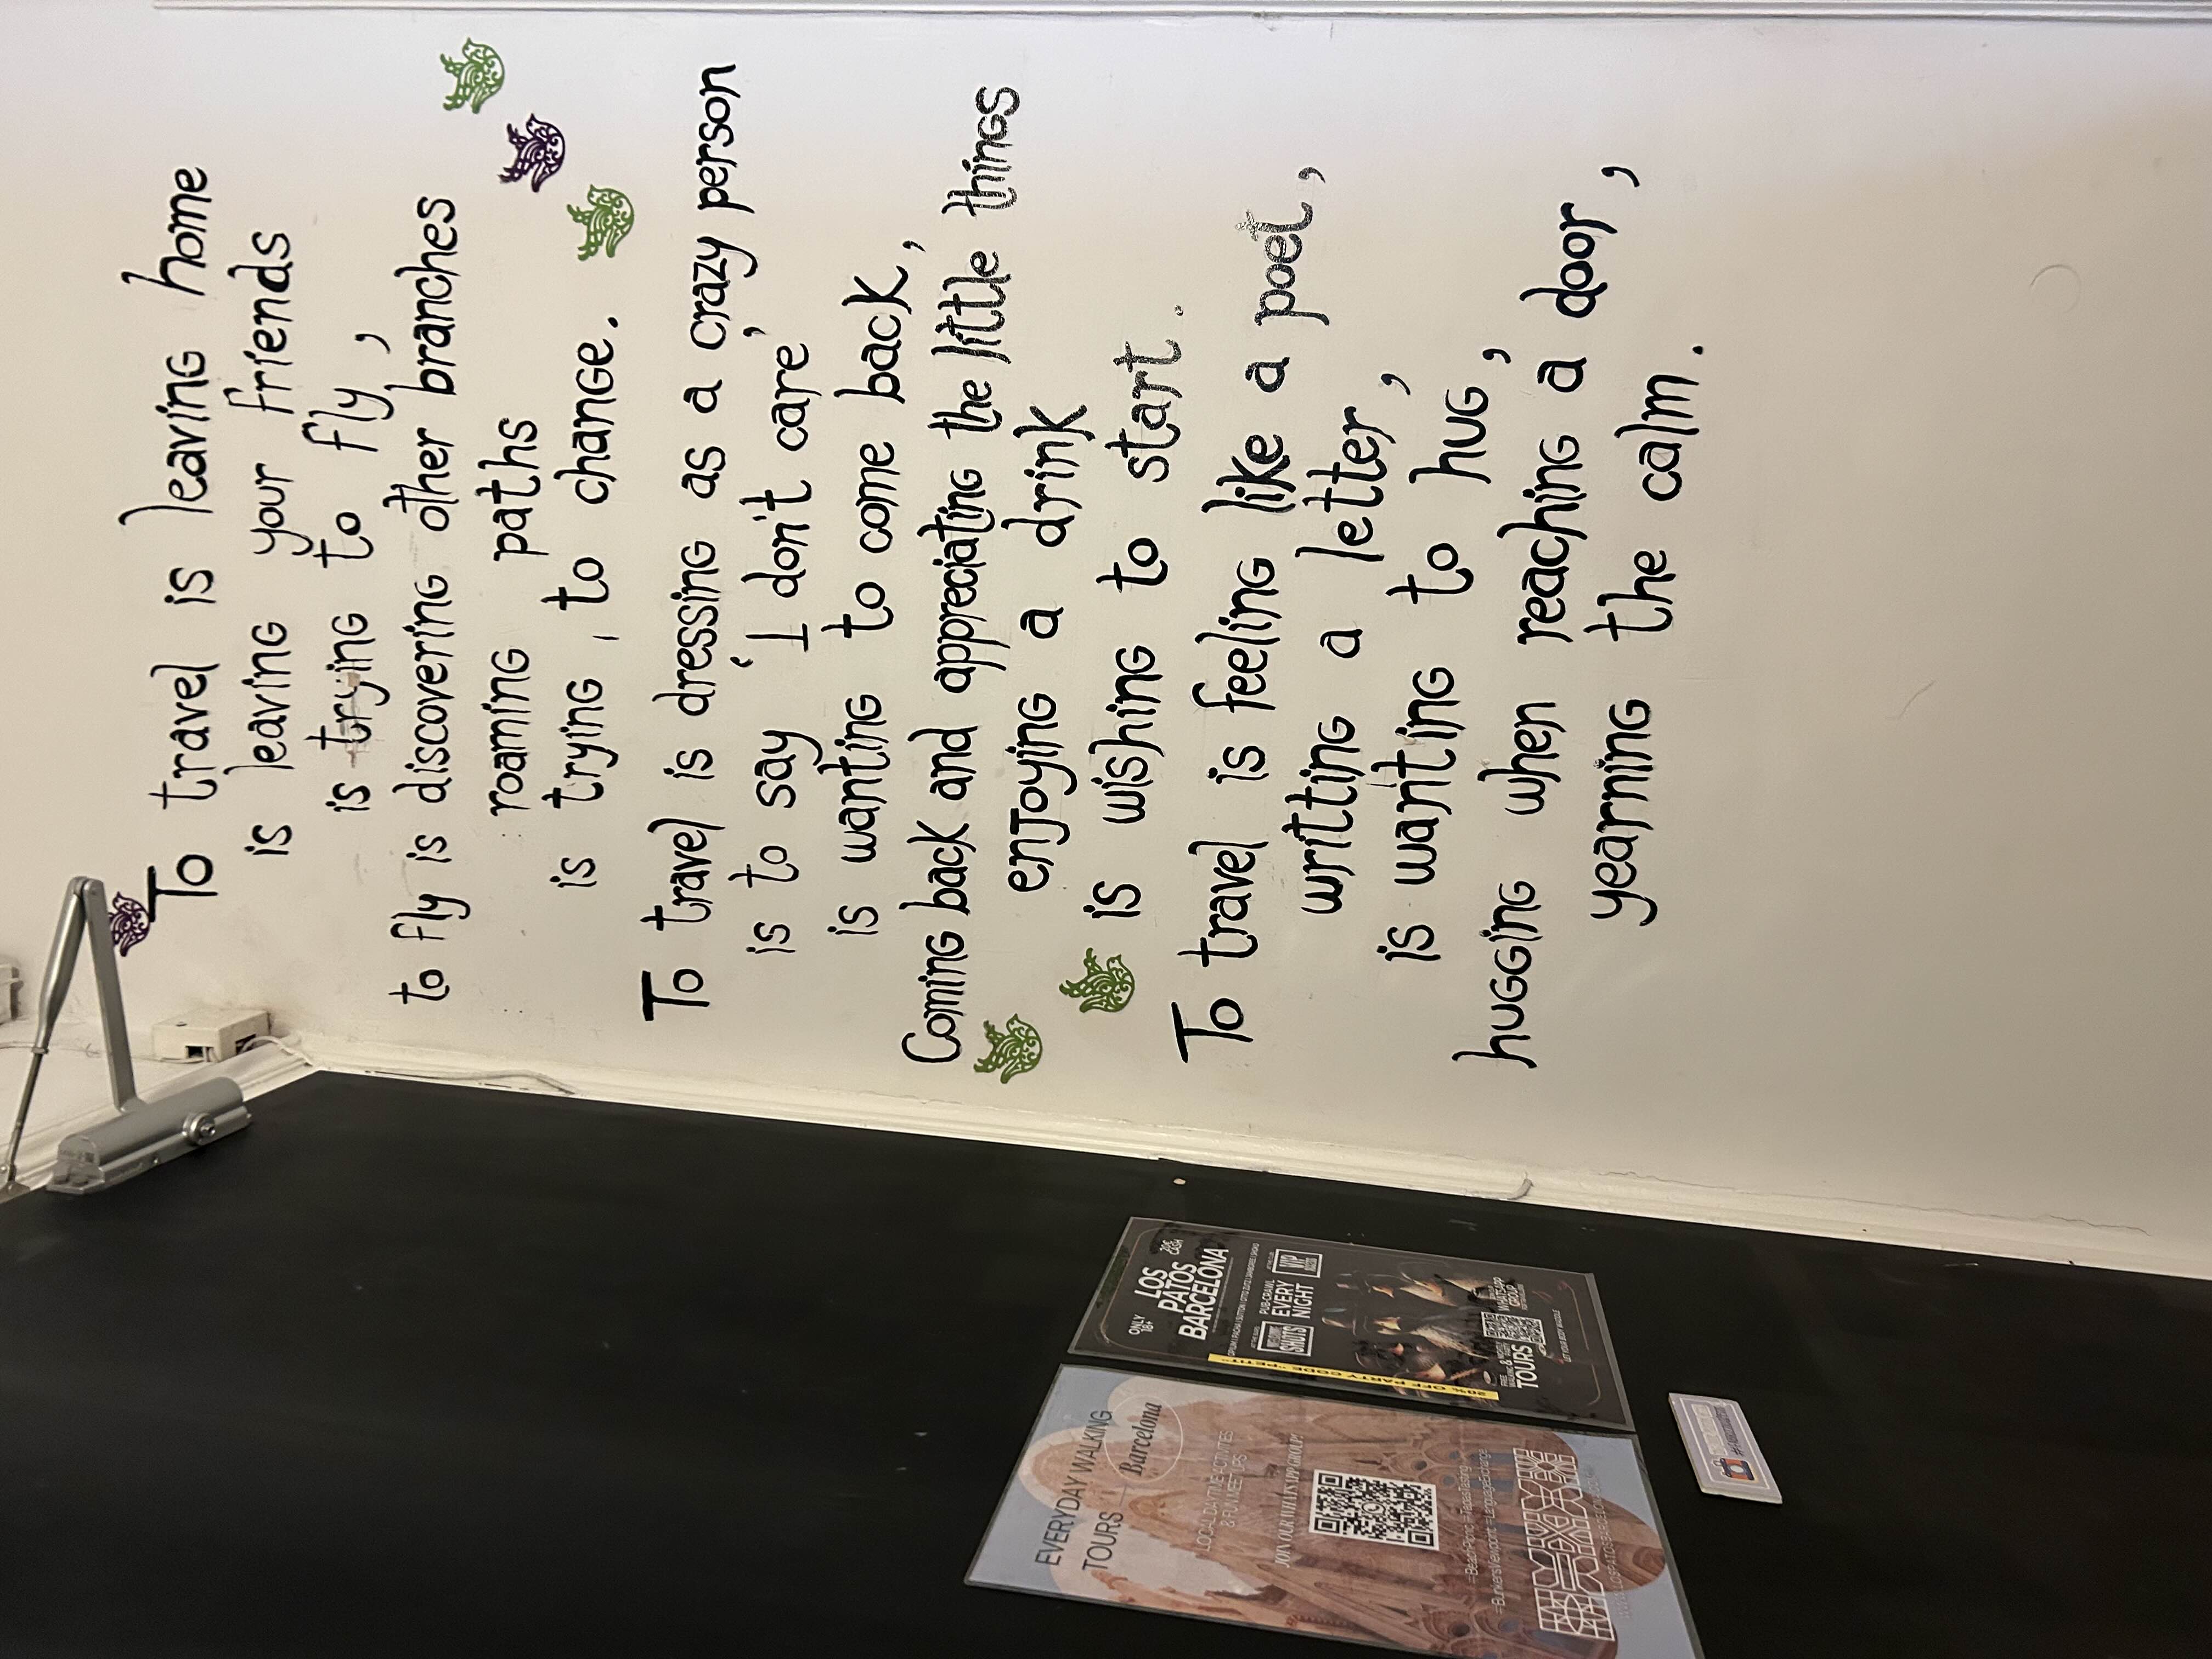 To travel is leaving home
is leaving your friends
is trying to fly,
to fly is discovering other branches
roaming paths
is trying, to change.
To travel is dressing as a crazy person
is to say 'I don't care'
is wanting to come back,
Coming back and appreciating the little things
enjoying a drink
is wishing to start.
To travel is feeling like a poet,
writting a letter,
is wanting to hug,
hugging when reaching a door,
yearning the calm.
ONLY
18+
LOS
PATOS
BARCELONA
PUB-CRAWL
EVERY
NIGHT
SHOTS
VIP
20% OFF PARTY CODE "PETIT"
FREE
TOURS
WHATSAPP
GROUP
EVERYDAY WALKING
TOURS
Barcelona
LOCAL DAYTIME ACTIVITIES
& FUN MEET UPS
JOIN OUR WHATSAPP GROUP!